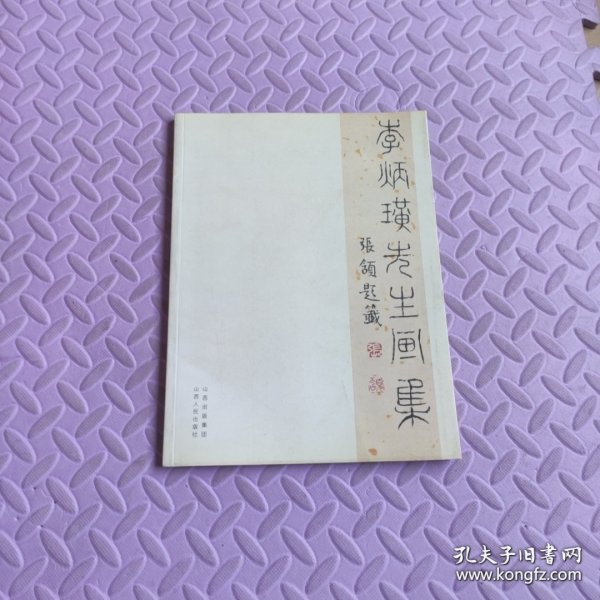 李炳璜先生画集
張頷題籤
山西出版集团
山西人民出版社
孔夫子旧书网
www.kongfz.com